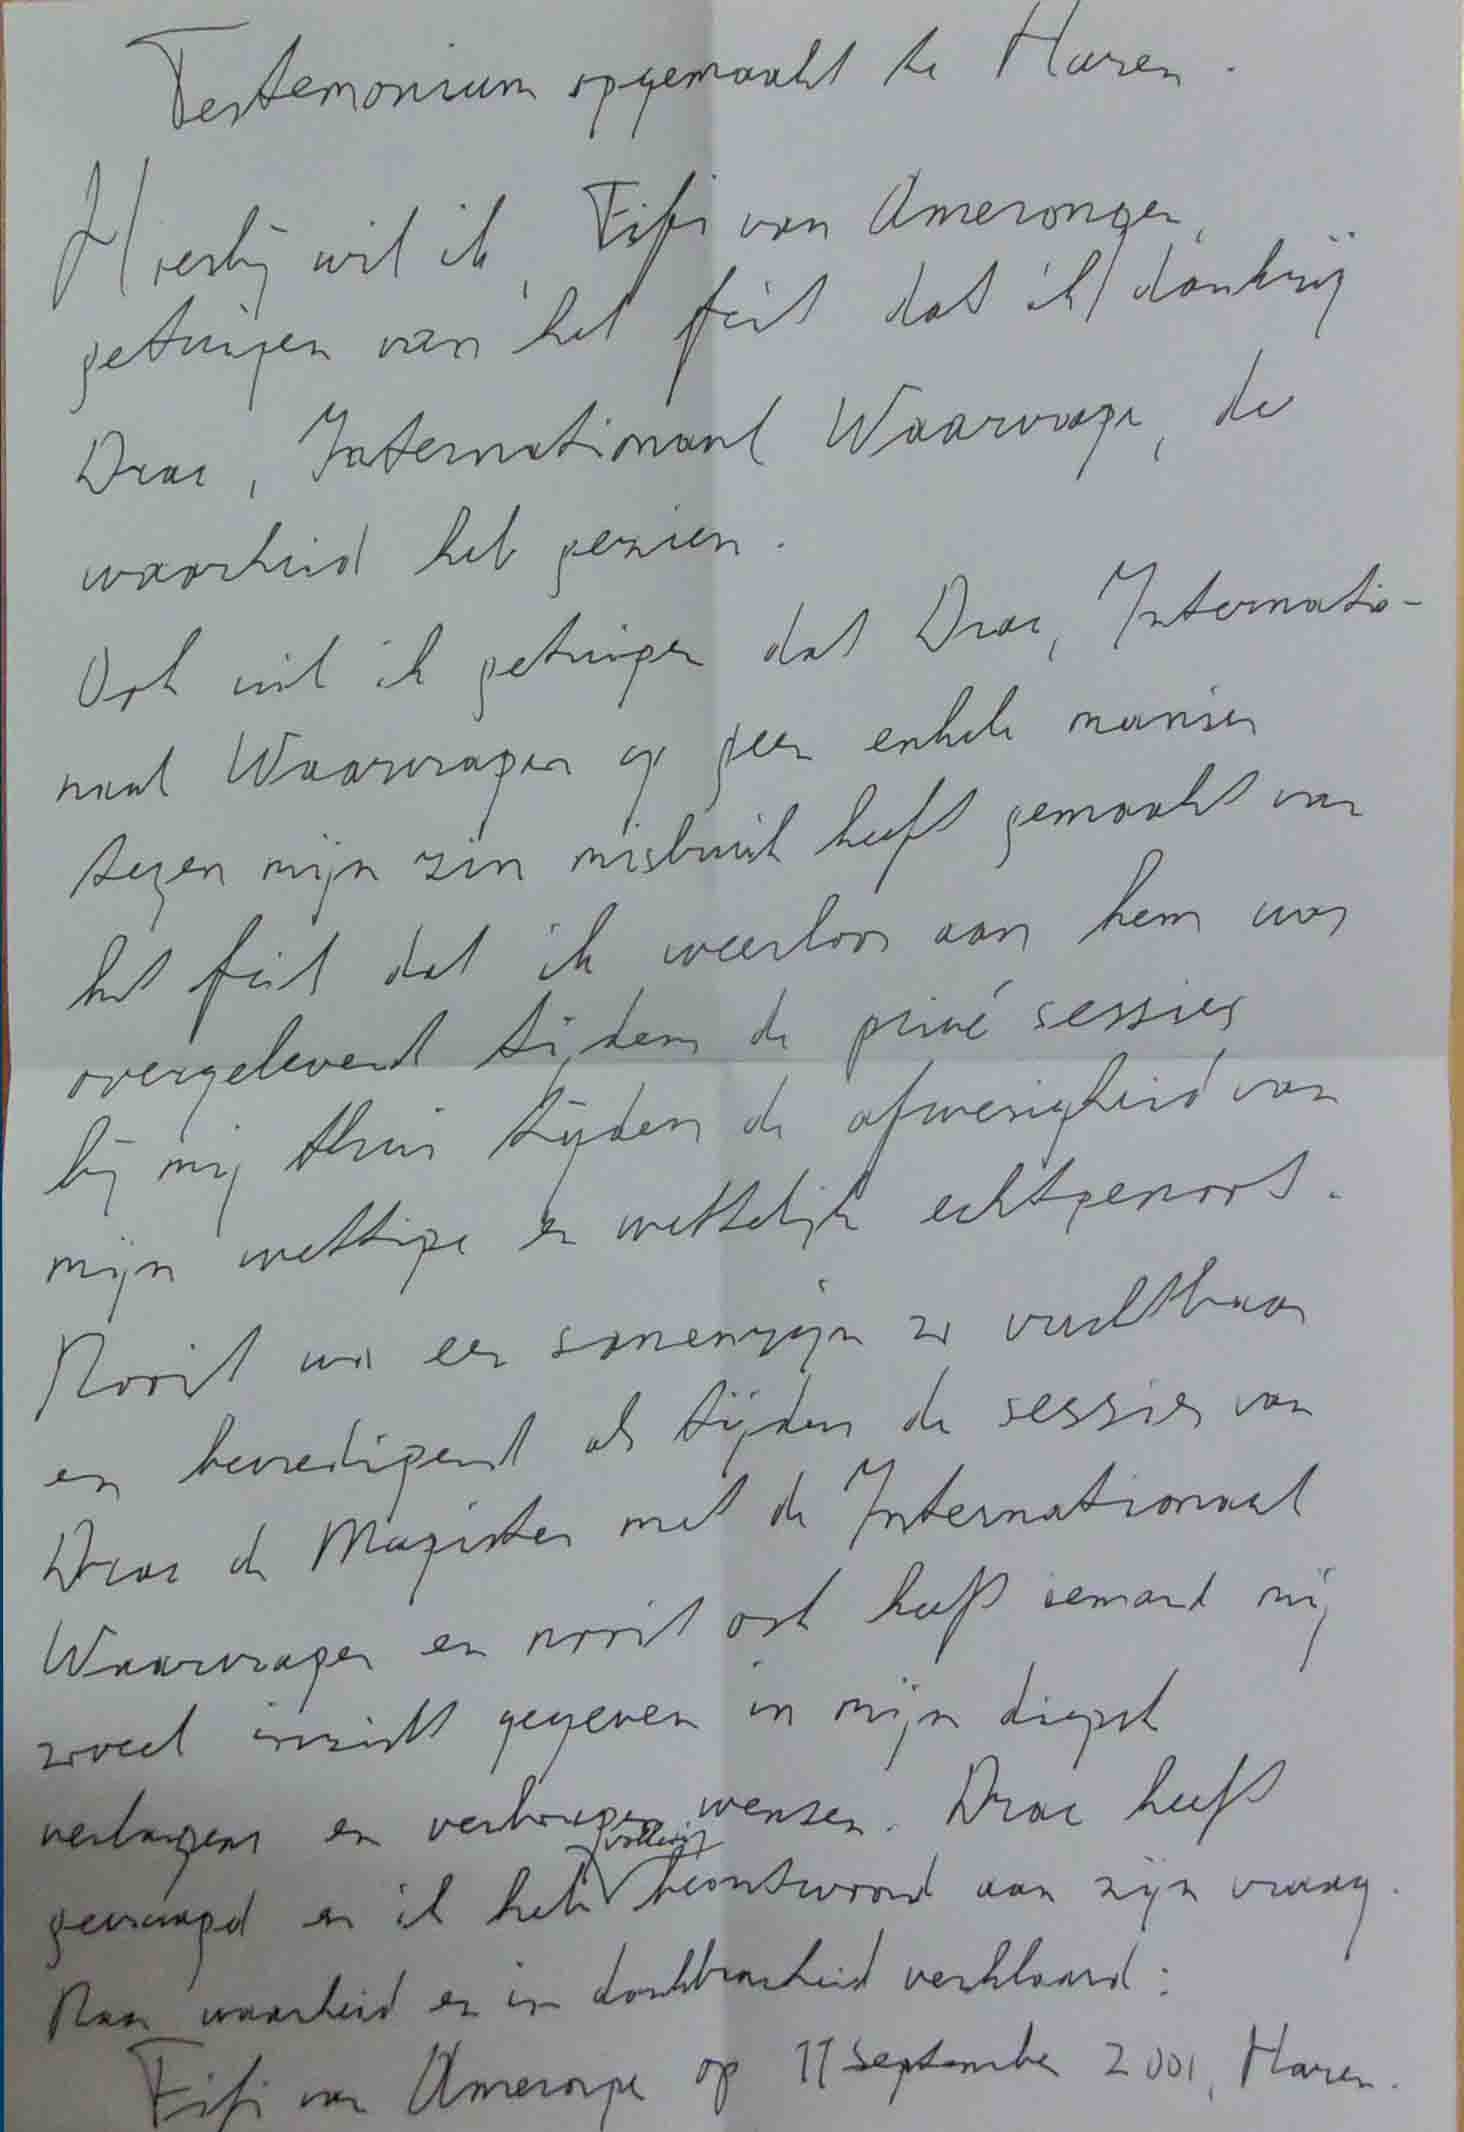 Testemonium opgemaakt te Haren.
Hierbij wil ik, Fifi van Amerongen,
getuigen van het feit dat ik dankzij
Drac, Internationaal Waarvrager, de
waarheid heb gezien.
Ook wil ik getuigen dat Drac, Internatio-
naal Waarvrager op geen enkele manier
tegen mijn zin misbruik heeft gemaakt van
het feit dat ik weerloos aan hem was
overgeleverd tijdens de privé sessies
bij mij thuis tijdens de afwezigheid van
mijn wettige en wettelijk echtgenoot.
Nooit was een samenzijn zo vruchtbaar
en bevredigend als tijdens de sessies van
Drac de Magister met de Internationaal
Waarvrager en nooit ook heeft iemand mij
zoveel inzicht gegeven in mijn diepste
verlangens en verborgen wensen. Drac heeft
gevraagd en ik heb volledig beantwoord aan zijn vraag.
Naar waarheid en in dankbaarheid verklaard:
Fifi van Amerongen op 11 september 2001, Haren.